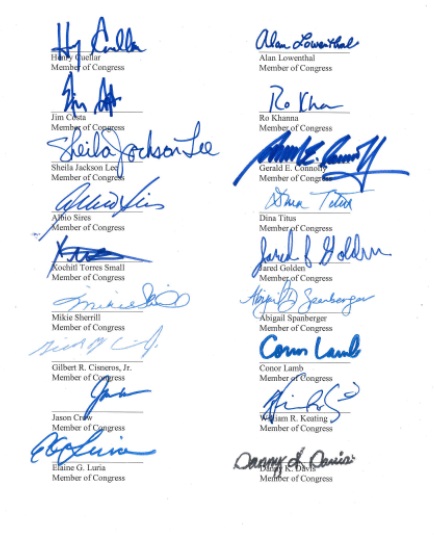 Henry Cuellar
Member of Congress
Alan Lowenthal
Alan Lowenthal
Member of Congress
Jim Costa
Member of Congress
Ro Khanna
Member of Congress
Sheila Jackson Lee
Sheila Jackson Lee
Member of Congress
Gerald E. Connolly
Member of Congress
Albio Sires
Member of Congress
Dina Titus
Dina Titus
Member of Congress
Xochitl Torres Small
Member of Congress
Jared Golden
Member of Congress
Mikie Sherrill
Mikie Sherrill
Member of Congress
Abigail Spanberger
Member of Congress
Gilbert R. Cisneros, Jr.
Member of Congress
Conor Lamb
Conor Lamb
Member of Congress
Jason Crow
Member of Congress
William R. Keating
Member of Congress
Elaine G. Luria
Member of Congress
Danny K. Davis
Danny K. Davis
Member of Congress